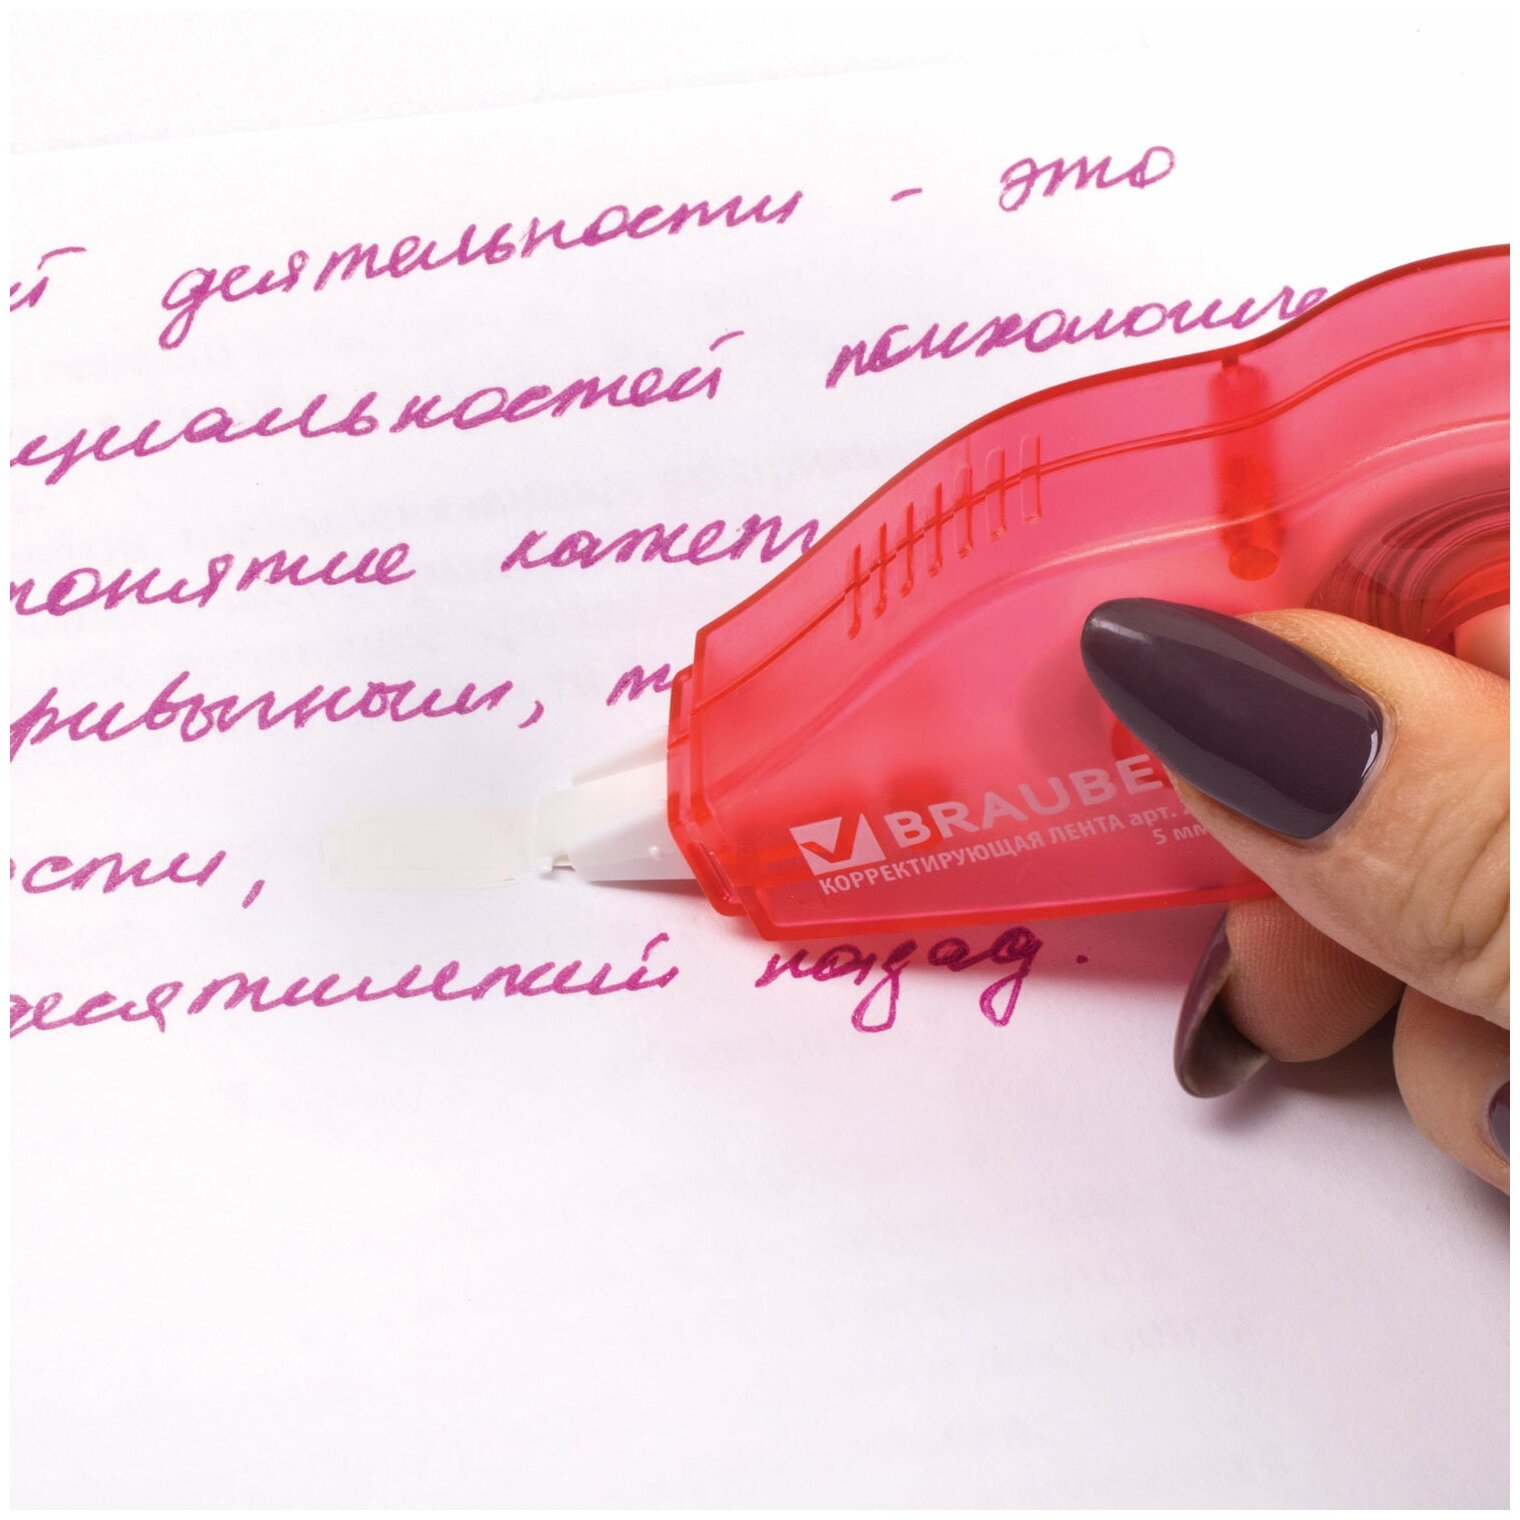 ей деятельности - это
циальностей психологиче
понятие кажет
ривычным, т
ости,
десятилетий назад.
BRAUBE
КОРРЕКТИРУЮЩАЯ ЛЕНТА арт.
5 мм